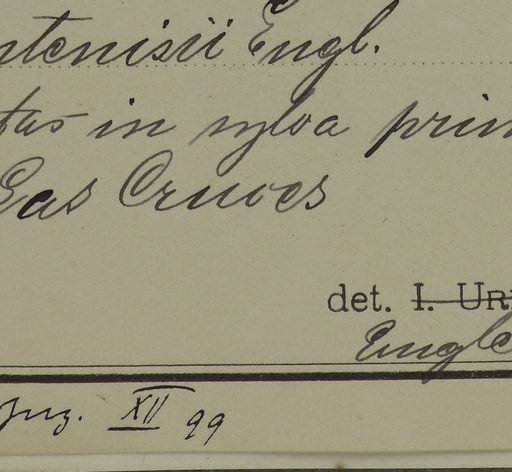 ntenisii Engl.
tas in sylva prim
Las Cruces
det. I. Ur
Engle
XII 99